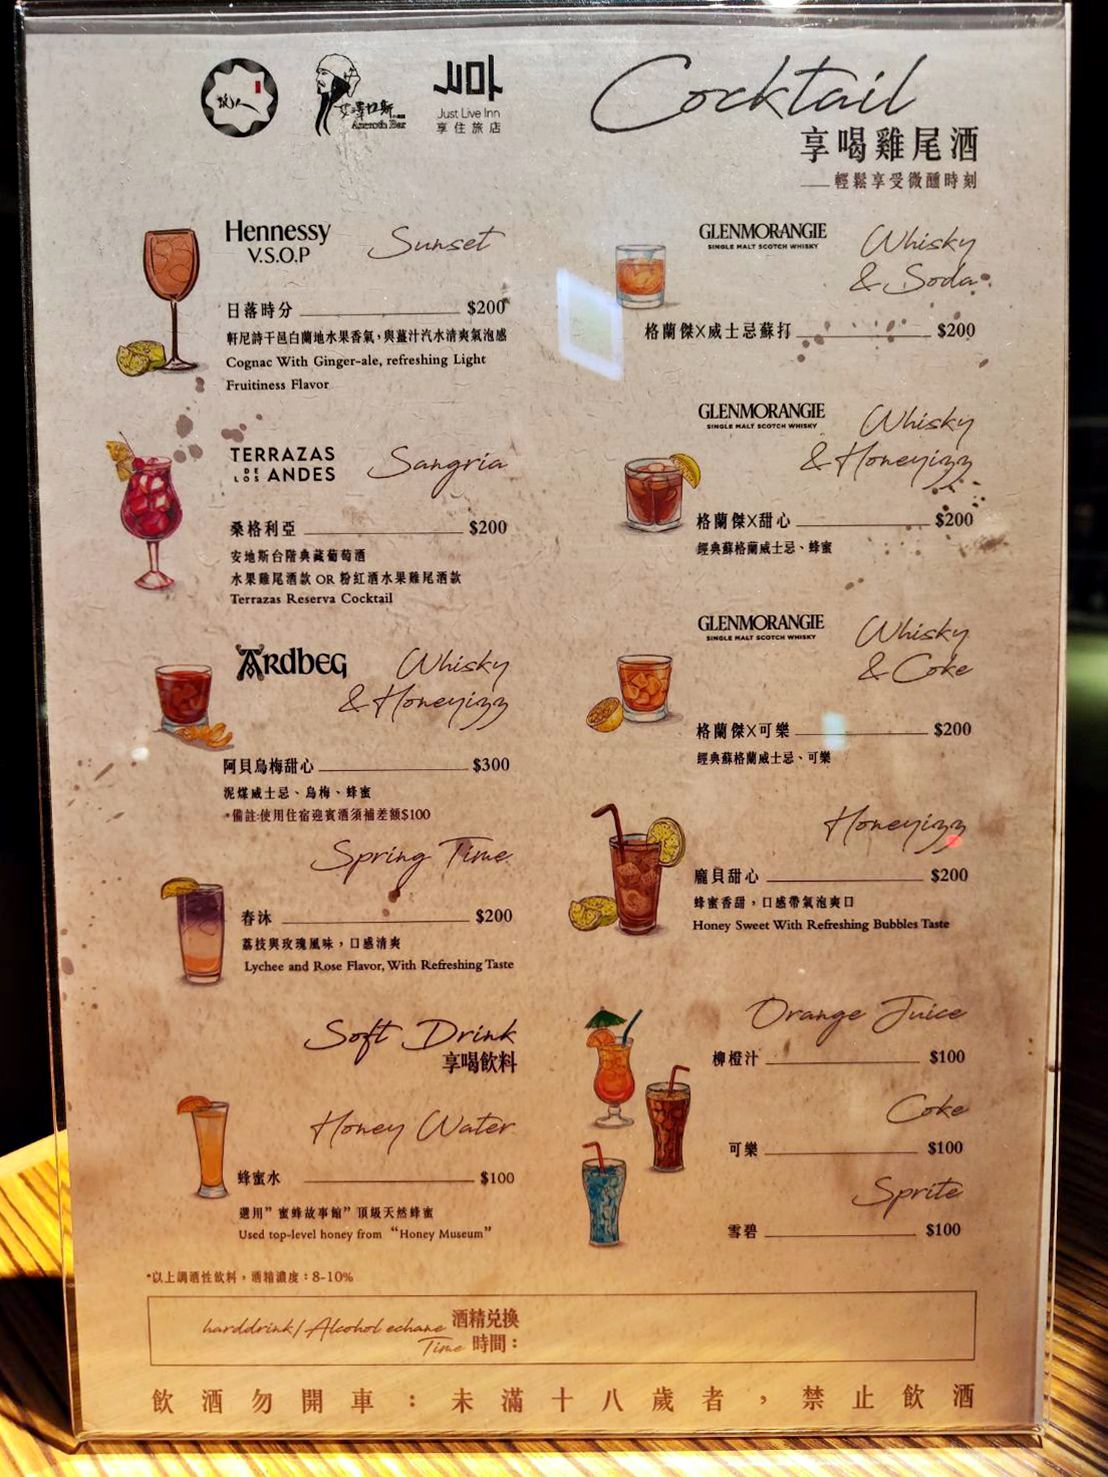 Just Live Inn
享住旅店
Cocktail
享喝雞尾酒
輕鬆享受微醺時刻
Hennessy
V.S.O.P
Sunset
日落時分 $200
軒尼詩干邑白蘭地水果香氣，與薑汁汽水清爽氣泡感
Cognac With Ginger-ale, refreshing Light
Fruitiness Flavor
TERRAZAS
DE LOS ANDES
Sangria
桑格利亞 $200
安地斯台階典藏葡萄酒
水果雞尾酒款 OR 粉紅酒水果雞尾酒款
Terrazas Reserva Cocktail
ARdbeg
Whisky
& Honeyizz
阿貝烏梅甜心 $300
泥煤威士忌、烏梅、蜂蜜
*備註:使用住宿迎賓酒須補差額$100
Spring Time
春沐 $200
荔枝與玫瑰風味，口感清爽
Lychee and Rose Flavor, With Refreshing Taste
Soft Drink
享喝飲料
Honey Water
蜂蜜水 $100
選用”蜜蜂故事館”頂級天然蜂蜜
Used top-level honey from “Honey Museum”
GLENMORANGIE
SINGLE MALT SCOTCH WHISKY
Whisky
& Soda
格蘭傑X威士忌蘇打 $200
GLENMORANGIE
SINGLE MALT SCOTCH WHISKY
Whisky
& Honeyizz
格蘭傑X甜心 $200
經典蘇格蘭威士忌、蜂蜜
GLENMORANGIE
SINGLE MALT SCOTCH WHISKY
Whisky
& Coke
格蘭傑X可樂 $200
經典蘇格蘭威士忌、可樂
Honeyizz
龐貝甜心 $200
蜂蜜香甜，口感帶氣泡爽口
Honey Sweet With Refreshing Bubbles Taste
Orange Juice
柳橙汁 $100
Coke
可樂 $100
Sprite
雪碧 $100
*以上調酒性飲料，酒精濃度：8-10%
harddrink/Alcohol echane 酒精兌換
Time 時間：
飲酒勿開車：未滿十八歲者，禁止飲酒